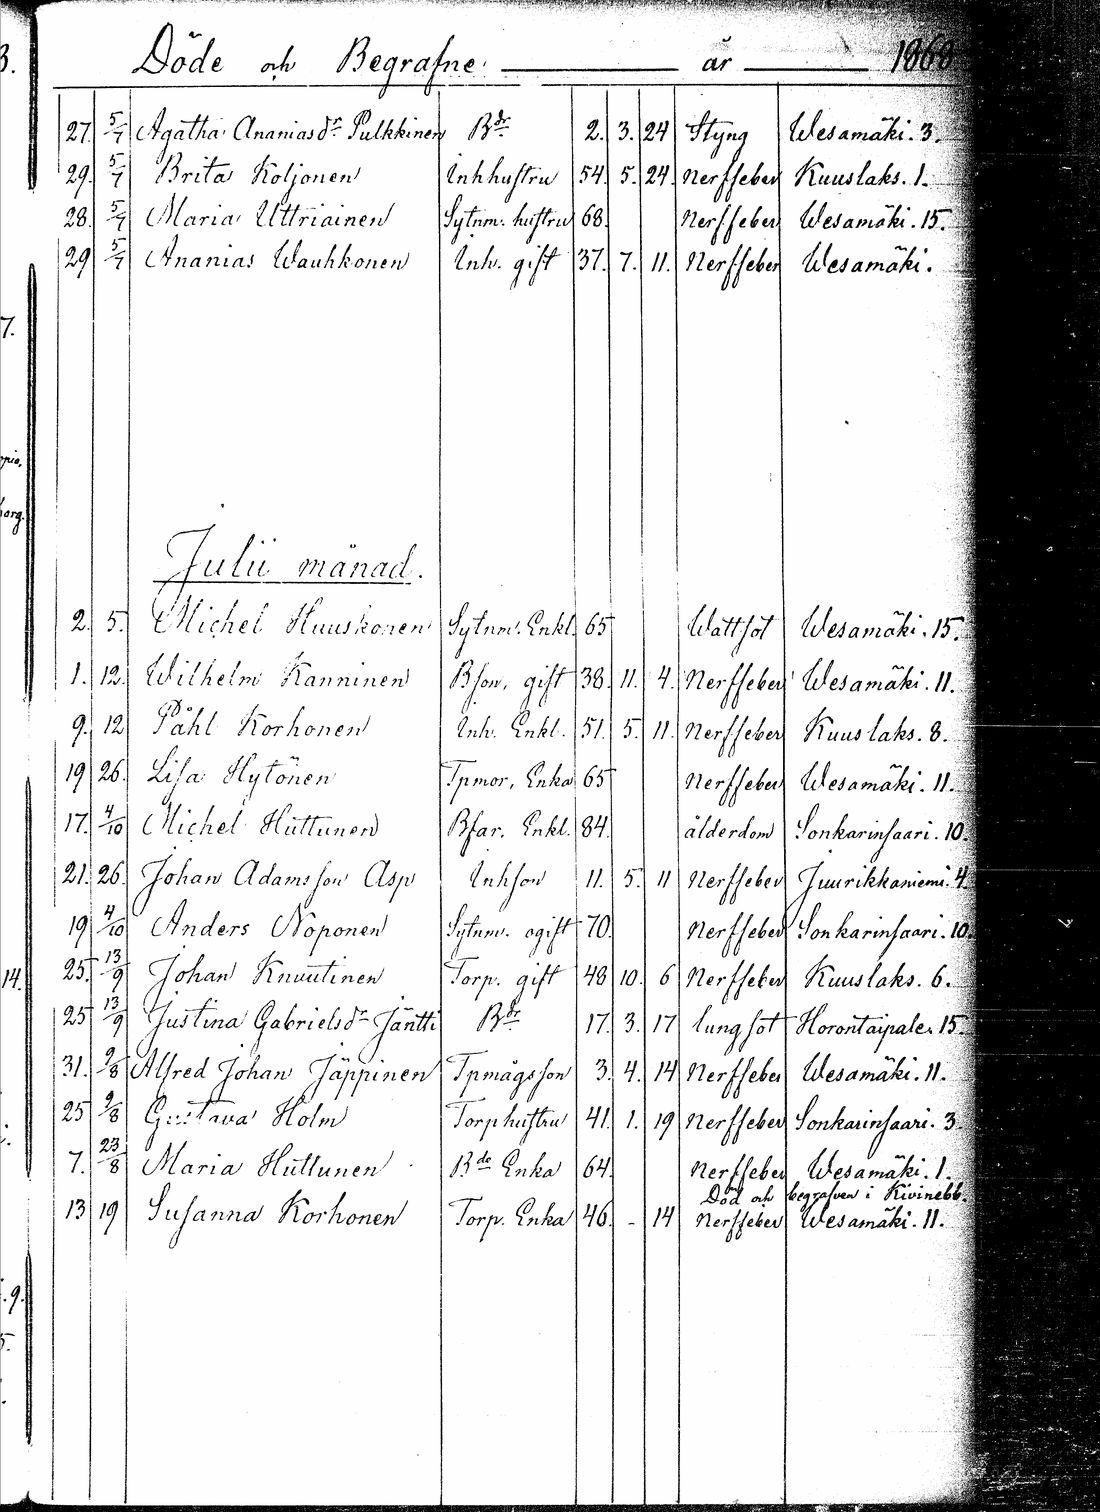 Döde och Begrafne år 1868
27. 5/7 Agatha Ananiasdr Pulkkinen Bdr 2. 3. 24 Styng Wesamäki. 3.
29. 5/7 Brita Koljonen Inhhustru 54. 5. 24. Nerffeber Kuuslaks. 1.
28. 5/7 Maria Uttriainen Sytnm. hustru 68. Nerffeber Wesamäki. 15.
29 5/7 Ananias Wauhkonen Inh. gift 37. 7. 11. Nerffeber Wesamäki.
Julii månad.
2. 5. Michel Huuskonen Sytnm. Enkl. 65 Wattsot Wesamäki. 15.
1. 12. Wilhelm Kanninen Bson, gift 38. 11. 4. Nerffeber Wesamäki. 11.
9. 12 Påhl Korhonen Inh. Enkl. 51. 5. 11. Nerffeber Kuuslaks. 8.
19 26. Lisa Hytönen Tpmor, Enka 65 Nerffeber Wesamäki. 11.
17. 4/10 Michel Huttunen Bfar. Enkl. 84. ålderdom Sonkarinsaari. 10.
21. 26. Johan Adamsson Asp Inhson 11. 5. 11 Nerffeber Juurikkaniemi. 4.
19 4/10 Anders Noponen Sytnm. ogift 70. Nerffeber Sonkarinsaari. 10.
25. 13/9 Johan Knuutinen Torp. gift 48 10. 6 Nerffeber Kuuslaks. 6.
25 13/9 Justina Gabrielsdr Jäntti Bdr 17. 3. 17 lungsot Horontaipale. 15.
31. 2/8 Alfred Johan Jäppinen Tpmågsson 3. 4. 14 Nerffeber Wesamäki. 11.
25 2/8 Gustava Holm Torphustru 41. 1. 19 Nerffeber Sonkarinsaari. 3.
7. 23/8 Maria Huttunen Bde Enka 64. Nerffeber Wesamäki. 1.
Död och begrafven i Kivinebb.
13 19 Susanna Korhonen Torp. Enka 46. - 14 Nerffeber Wesamäki. 11.